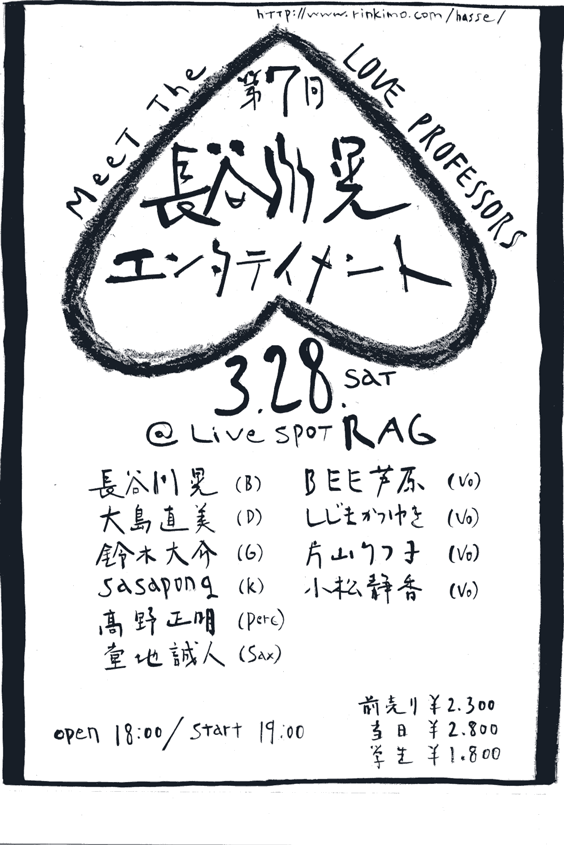 http://www.rinkimo.com/hasse/
MeeT The
LOVE PROFESSORS
第7回
長谷川晃
エンタテイメント
3.28. SAT
@ Live SPOT RAG
長谷川晃 (B)
大島直美 (D)
鈴木大介 (G)
sasapong (K)
高野正明 (Perc)
堂地誠人 (Sax)
BEE芦原 (Vo)
しじまかつゆき (Vo)
片山りつ子 (Vo)
小松静香 (Vo)
open 18:00/start 19:00
前売り ¥2.300
当日 ¥2.800
学生 ¥1.800